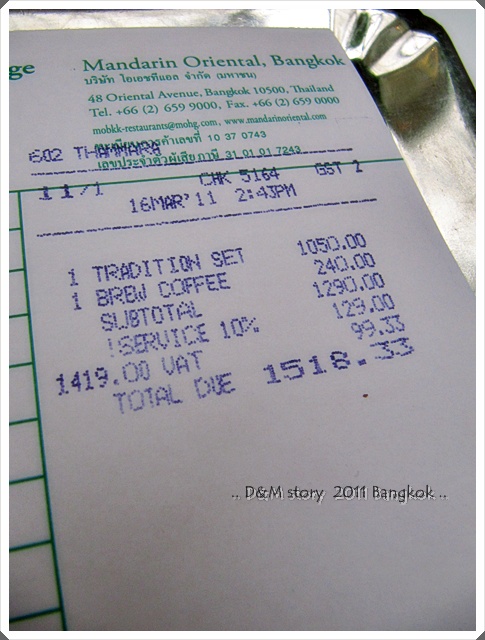 ge
Mandarin Oriental, Bangkok
บริษัท โอเอชทีแอล จำกัด (มหาชน)
48 Oriental Avenue, Bangkok 10500, Thailand
Tel. +66 (2) 659 9000, Fax. +66 (2) 659 0000
mobkk-restaurants@mohg.com, www.mandarinoriental.com
10 37 0743
602 THAMMARA
เลขประจำตัวผู้เสียภาษี 31 01 01 7243
11/1 CHK 5164 GST 1
16MAR'11 2:43PM
1 TRADITION SET 1050.00
1 BREW COFFEE 240.00
SUBTOTAL 1290.00
!SERVICE 10% 129.00
1419.00 VAT 99.33
TOTAL DUE 1518.33
.. D&M story 2011 Bangkok ..